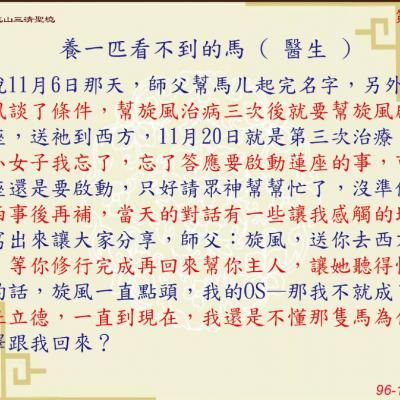 山三清聖境
養一匹看不到的馬 ( 醫生 )
11月6日那天，師父幫馬儿起完名字，另外
談了條件，幫旋風治病三次後就要幫旋風
座，送祂到西方，11月20日就是第三次治療
小女子我忘了，忘了答應要啟動蓮座的事，
座還是要啟動，只好請眾神幫幫忙了，沒準
事後再補，當天的對話有一些讓我感觸的
寫出來讓大家分享，師父：旋風，送你去西
，等你修行完成再回來幫你主人，讓她聽得
的話，旋風一直點頭，我的OS—那我不就成
立德，一直到現在，我還是不懂那隻馬為
跟我回來？
96-1